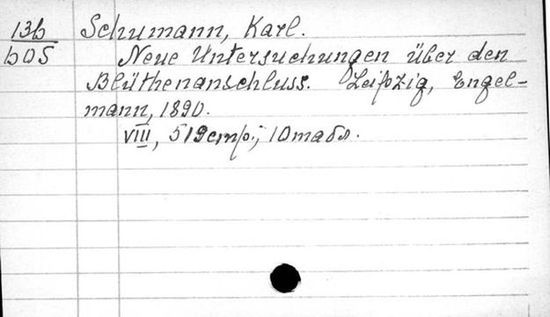 13b Schumann, Karl.
b05 Neue Untersuchungen über den
Blüthenanschluss. Leipzig, Engel-
mann, 1890.
VIII, 519 стр.; 10 табл.